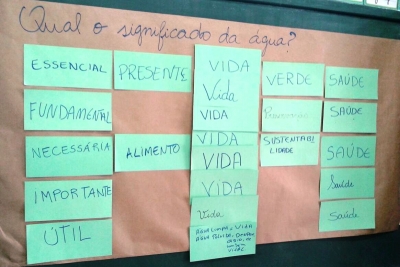 Qual o significado da água?
ESSENCIAL
FUNDAMENTAL
NECESSÁRIA
IMPORTANTE
ÚTIL
PRESENTE
ALIMENTO
VIDA
Vida
VIDA
VIDA
VIDA
VIDA
Vida
ÁGUA LIMPA, VIDA
VERDE
SUSTENTABI
LIDADE
SAÚDE
SAÚDE
SAÚDE
Saúde
Saúde